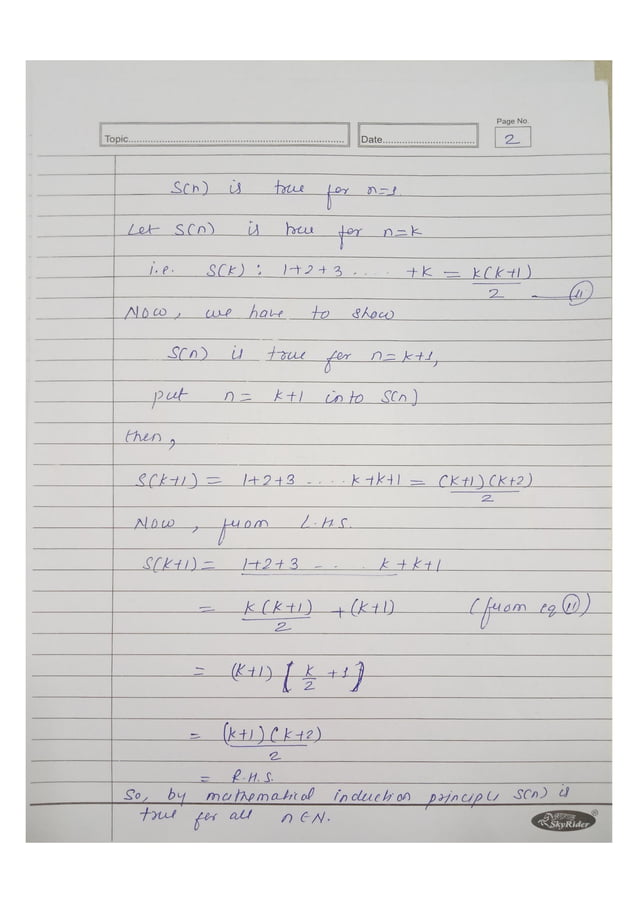 Page No.
Topic.................... Date.................... 2
S(n) is true for n=1.
Let S(n) is true for n=k
i.e. S(k) : 1+2+3 .... +k = k(k+1)/2 — (11)
Now, we have to show
S(n) is true for n=k+1,
put n = k+1 into S(n)
then,
S(k+1) = 1+2+3 ..... k+k+1 = (k+1)(k+2)/2
Now, from L.H.S.
S(k+1) = 1+2+3 - .. k+k+1
= k(k+1)/2 + (k+1) (from eq (11))
= (k+1) [k/2 + 1]
= (k+1)(k+2)/2
= R.H.S.
So, by mathematical induction principle S(n) is
true for all n∈N.
SkyRider ®